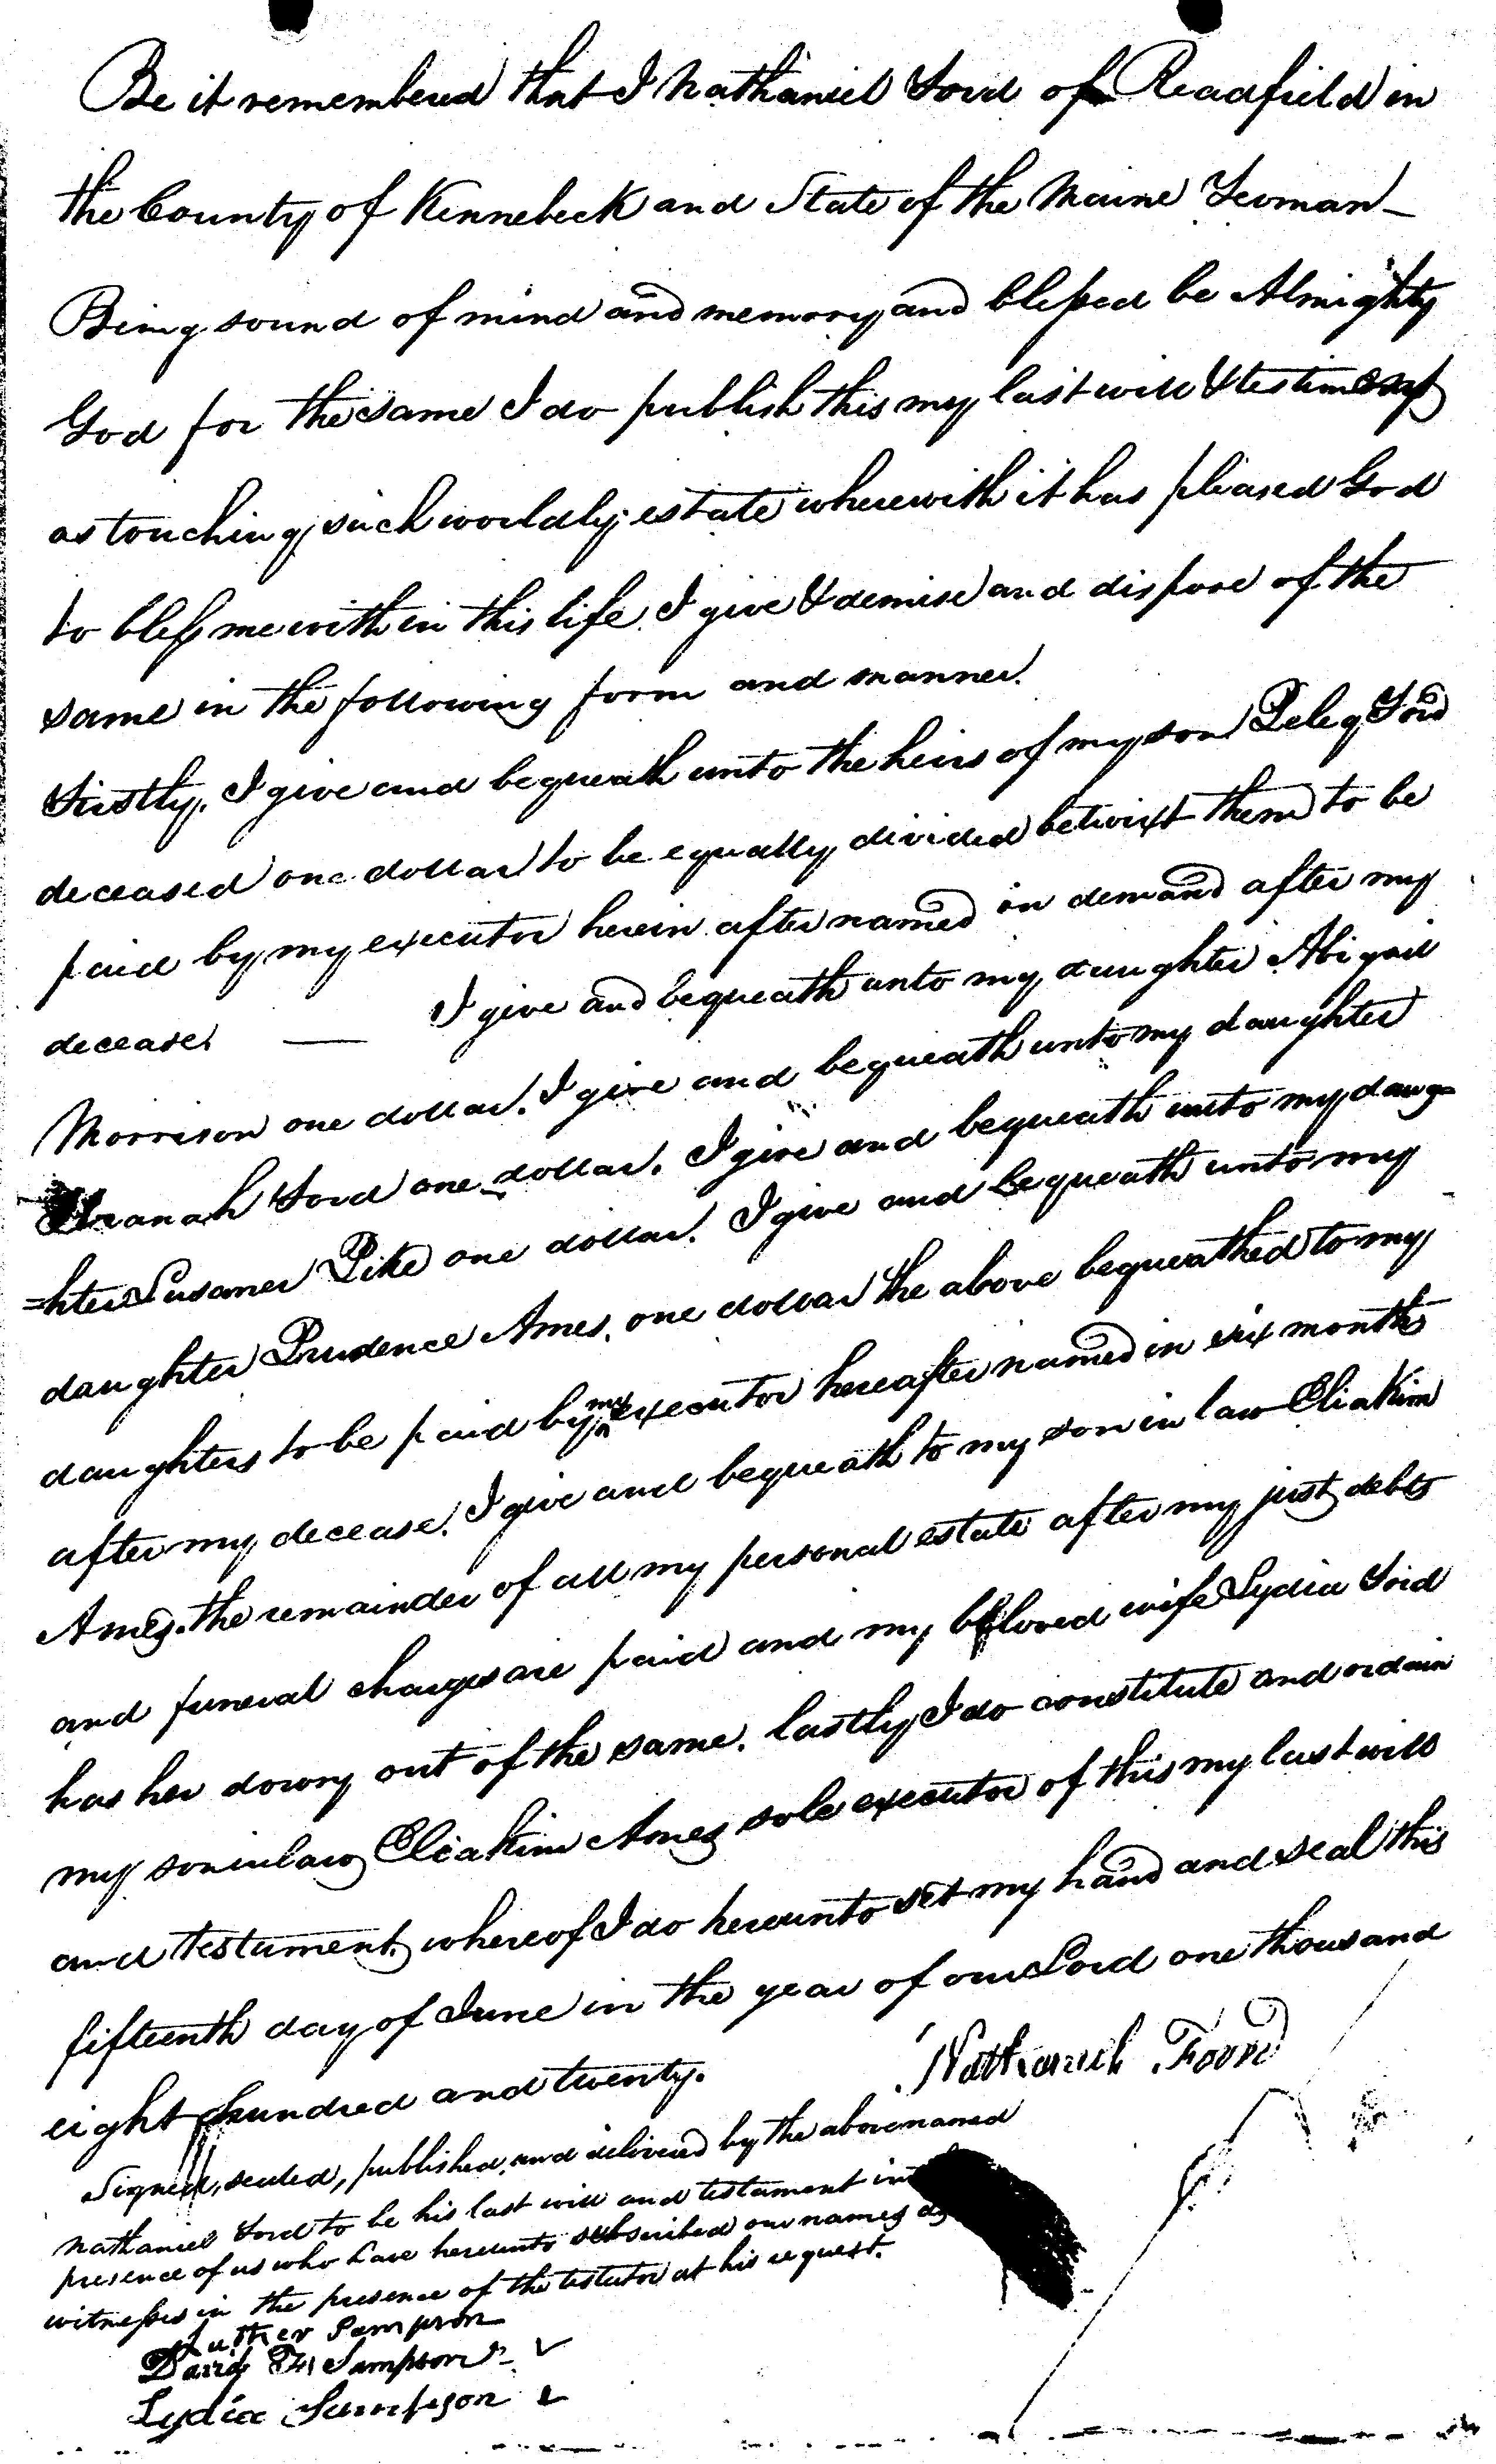 Be it remembered that I Nathaniel Ford of Readfield in
the County of Kennebeck and State of the Maine Yeoman —
Being sound of mind and memory and blessed be Almighty
God for the same I do publish this my last will & testimony
as touching such worldly estate wherewith it has pleased God
to bless me with in this life I give & demise and dispose of the
same in the following form and manner.
Firstly. I give and bequeath unto the heirs of my son Peleg Ford
deceased one dollar to be equally divided betwixt them to be
paid by my executor herein after named on demand after my
decease. — I give and bequeath unto my daughter Abigail
Morrison one dollar. I give and bequeath unto my daughter
Ford one dollar. I give and bequeath unto my daug=
=hter Susaner Pike one dollar. I give and bequeath unto my
daughter Prudence Ames, one dollar the above bequeathed to my
daughters to be paid by my executor hereafter named in six months
after my decease. I give and bequeath to my son in law Eliakim
Ames. the remainder of all my personal estate after my just debts
and funeral charges are paid and my beloved wife Lydia Ford
has her dowry out of the same. lastly I do constitute and ordain
my son in law Eliakim Ames sole executor of this my last will
and testament. whereof I do hereunto set my hand and seal this
fifteenth day of June in the year of our Lord one thousand
eight hundred and twenty.
Nathaniel Foord
Signed, sealed, published, and delivered by the abovenamed
Nathaniel Ford to be his last will and testament in
presence of us who have hereunto subscribed our names as
witnesses in the presence of the testator at his request.
Luther Sampson
David F. Sampson
Lydia Sampson